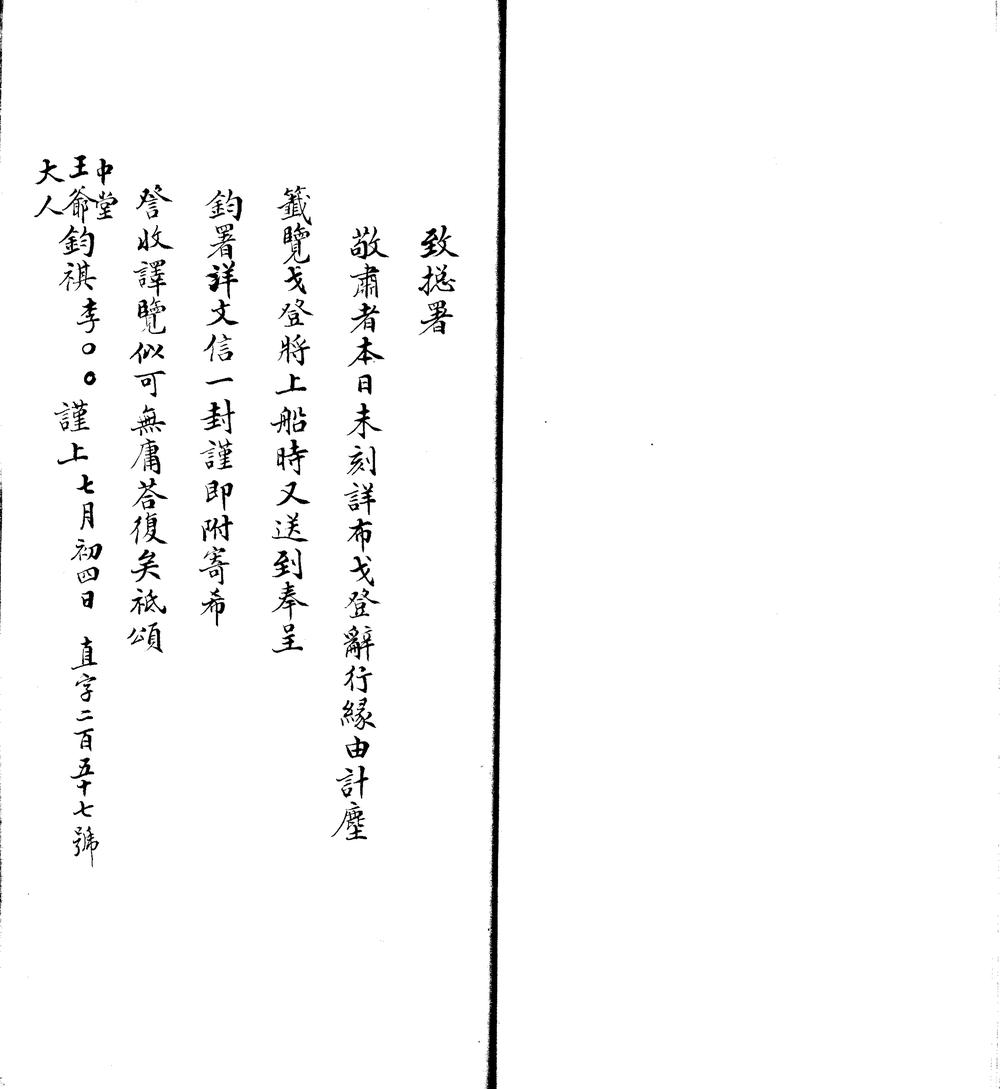 致捴署
敬肅者本日未刻詳布戈登辭行緣由計塵
籤覽戈登將上船時又送到奉呈
鈞署詳文信一封謹即附寄希
詧收譯覽似可無庸荅復矣祗頌
中堂
王爺
大人
鈞祺李○○謹上七月初四日 直字二百五十七號